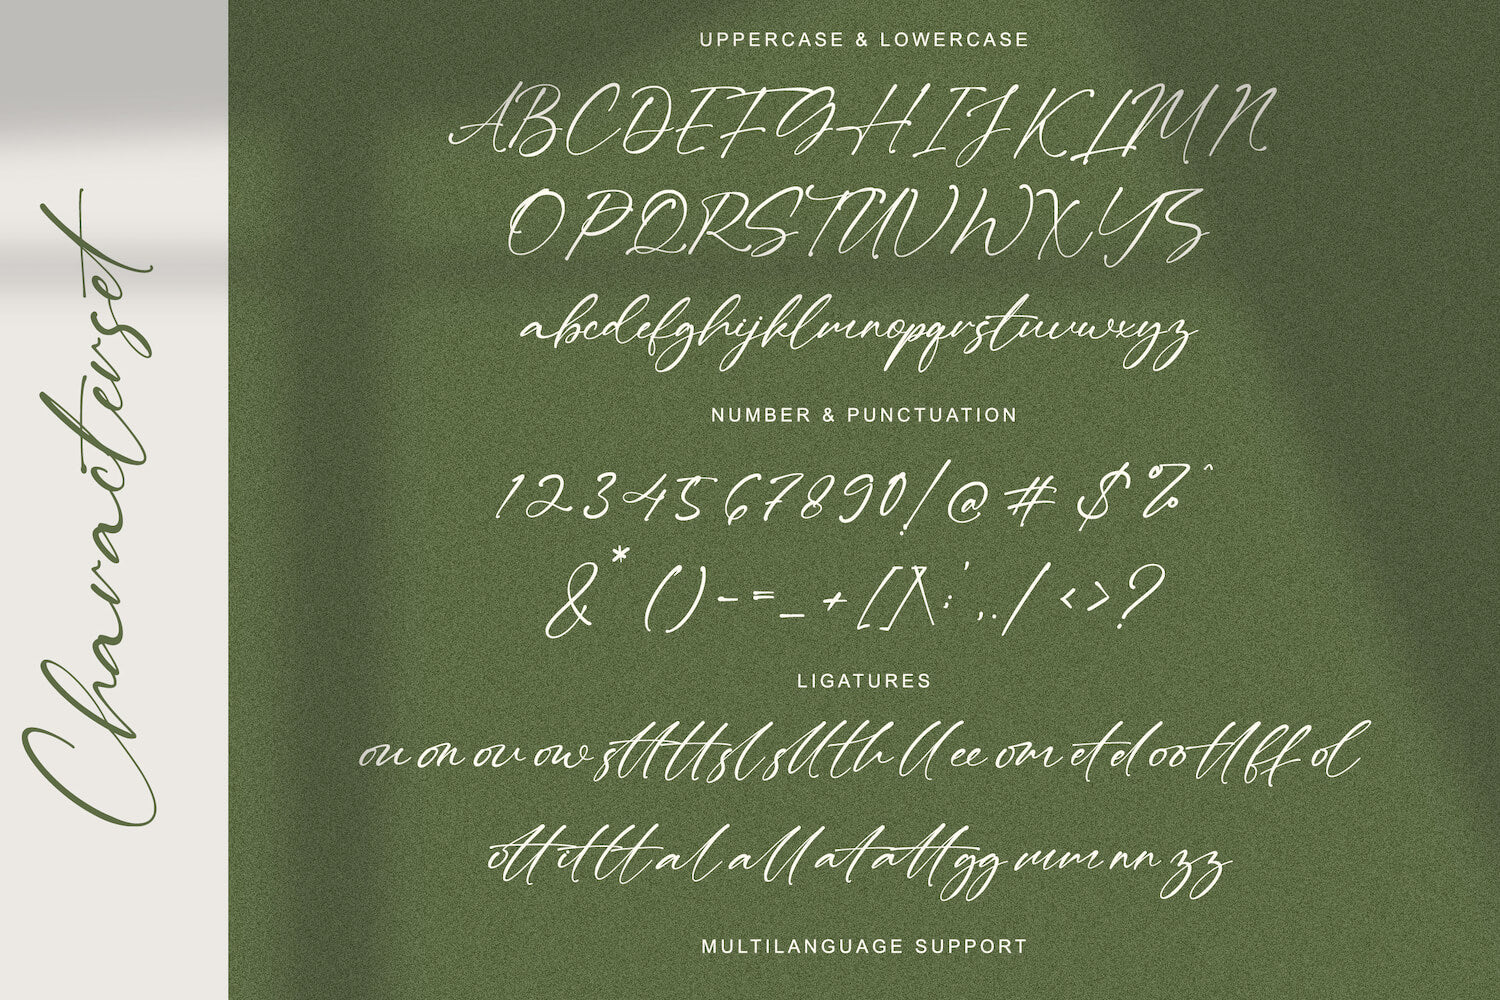 Characterset
UPPERCASE & LOWERCASE
ABCDEFGHIJKLMN
OPQRSTUVWXYZ
abcdefghijklmnopqrstuvwxyz
NUMBER & PUNCTUATION
1234567890!@#$%^
&*()-=_+[]\:',./<>?
LIGATURES
ou on ov ow st tt sl sll th ll ee om et el oo tl ff ol
ott it lt al all at att gg mm nn zz
MULTILANGUAGE SUPPORT